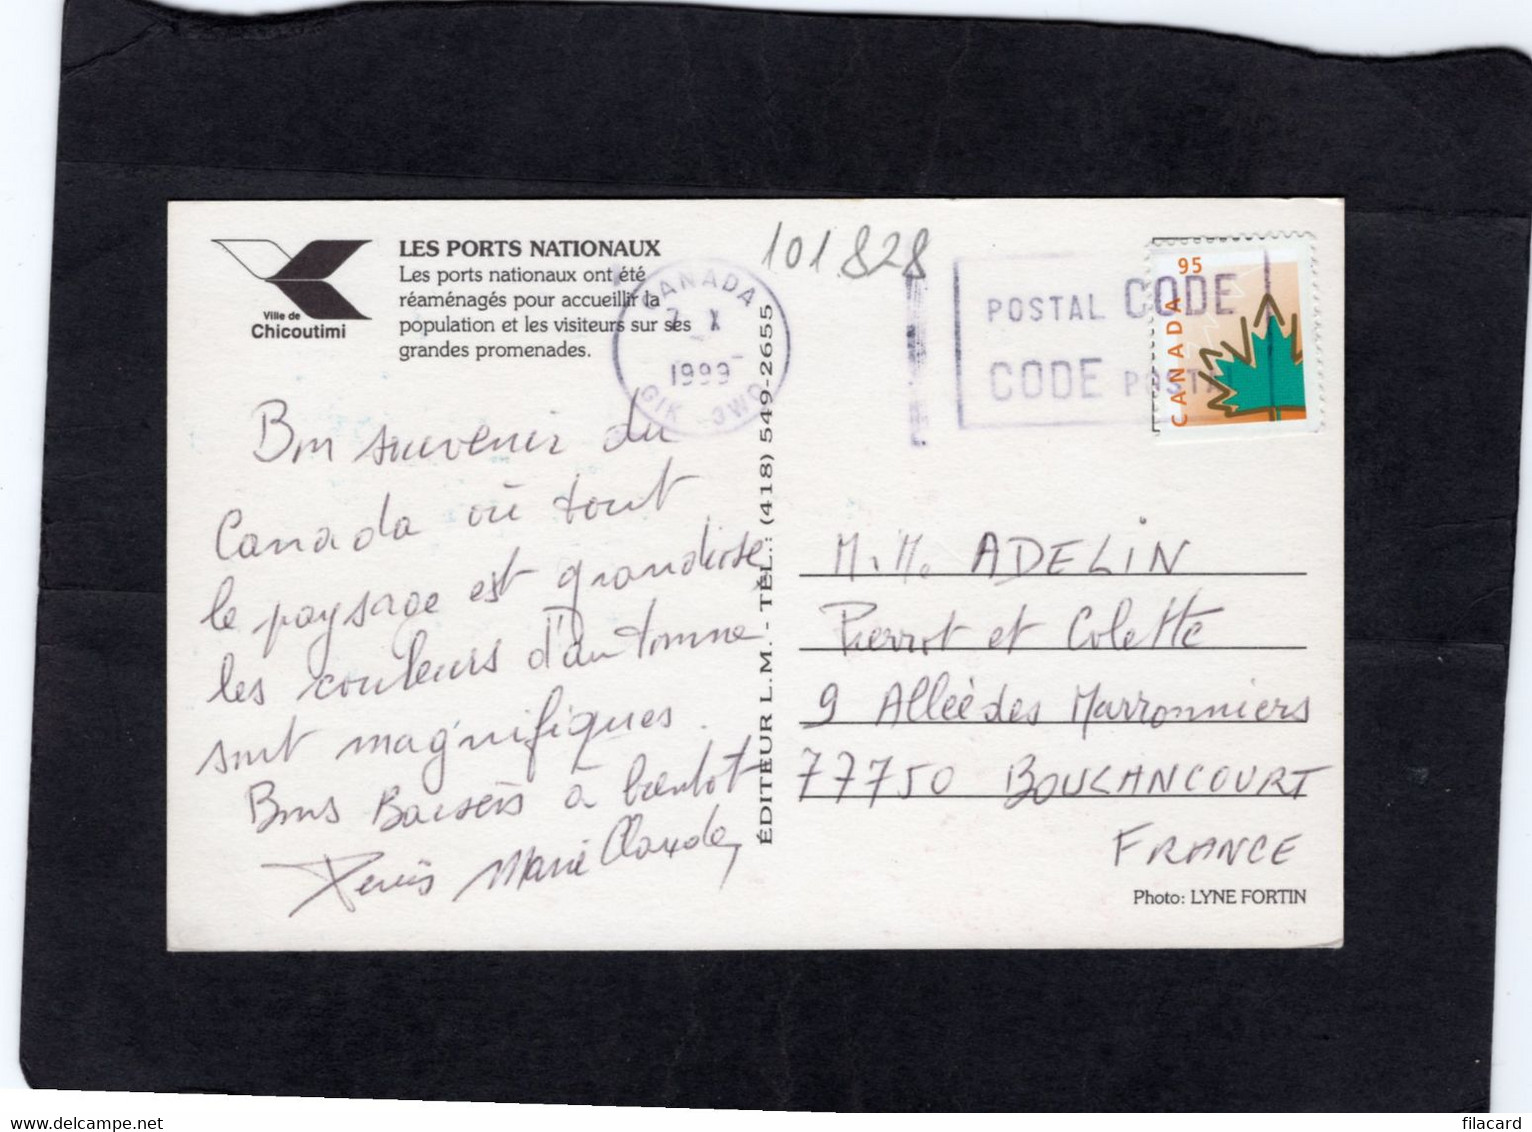 Ville de
Chicoutimi
LES PORTS NATIONAUX
Les ports nationaux ont été
réaménagés pour accueillir la
population et les visiteurs sur ses
grandes promenades.
Bon souvenir du
Canada où tout
le paysage est grandiose
les couleurs d'automne
sont magnifiques.
Bons Baisers à bientot
Denis Marie Claude
CANADA
7 X
1999
G1K 3W0
101.828
ÉDITEUR L.M. - TÉL.: (418) 549-2655
POSTAL CODE
CODE POSTAL
95
CANADA
M.M. ADELIN
Pierrot et Colette
9 Allée des Marronniers
77750 BOUCANCOURT
FRANCE
Photo: LYNE FORTIN
delcampe.net
filacard